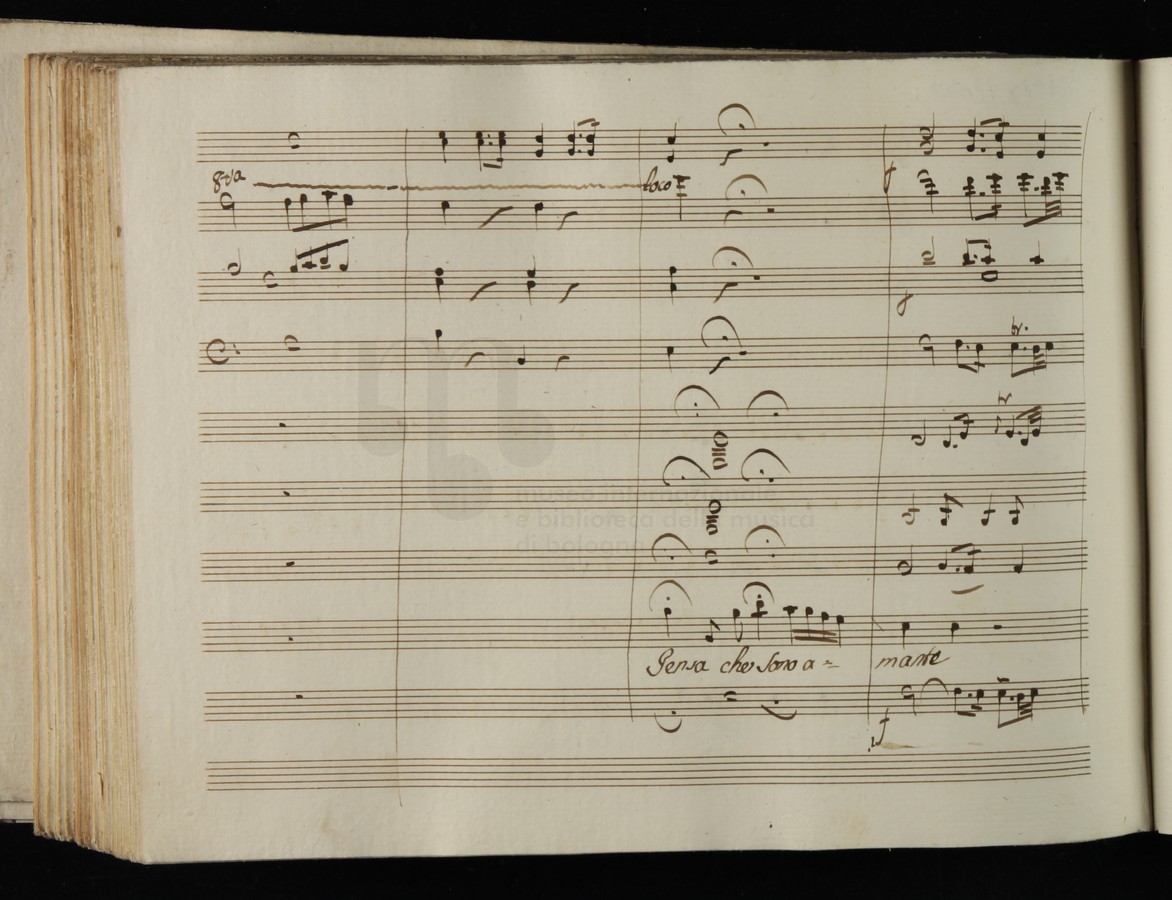 8va loco
f
f
tr.
tr
Pensa che sono a= mante
f
museo internazionale
e biblioteca della musica
di bologna